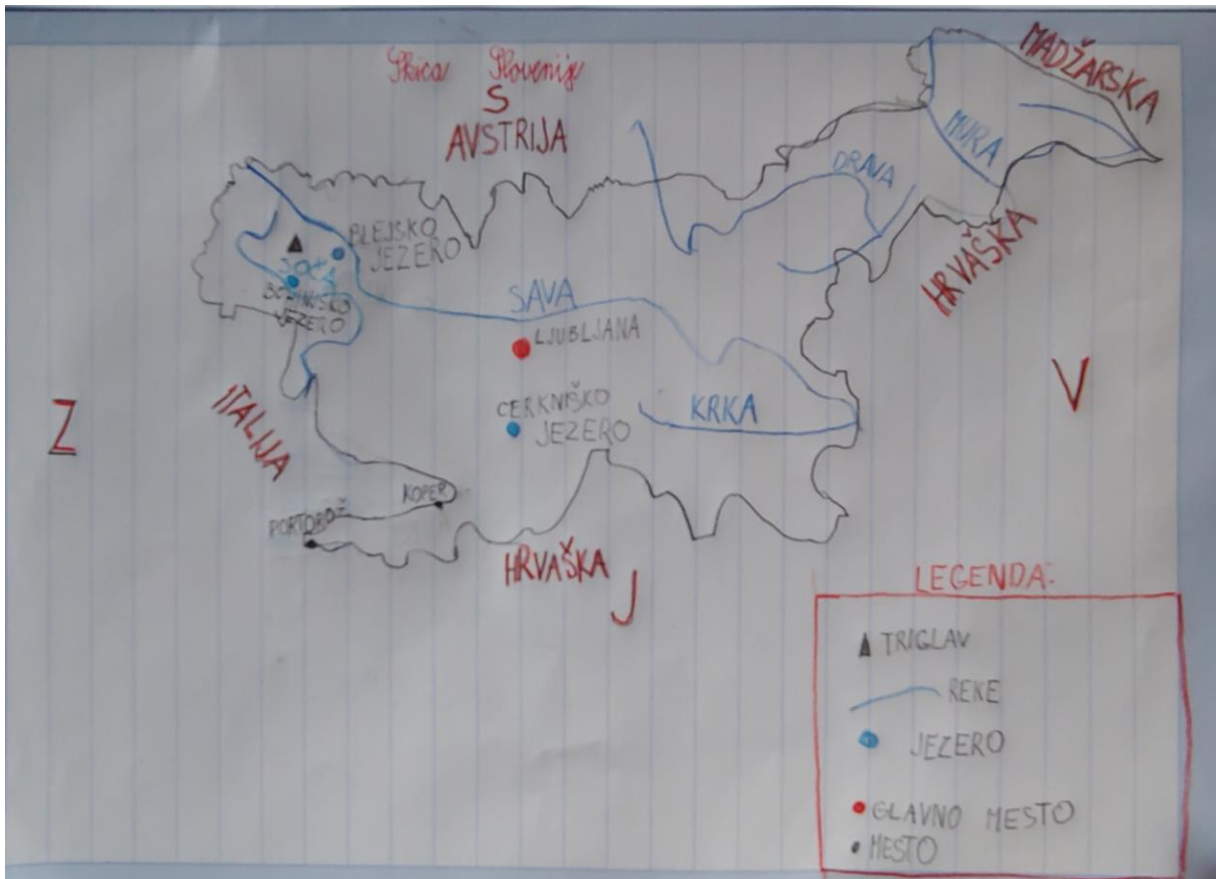 Skica Slovenije
S
AVSTRIJA
MADŽARSKA
MURA
DRAVA
HRVAŠKA
BLEJSKO
JEZERO
SOČA
BOHINJSKO
JEZERO
SAVA
LJUBLJANA
V
Z
ITALIJA
CERKNIŠKO
JEZERO
KRKA
KOPER
PORTOROŽ
HRVAŠKA
J
LEGENDA:
TRIGLAV
REKE
JEZERO
GLAVNO MESTO
MESTO